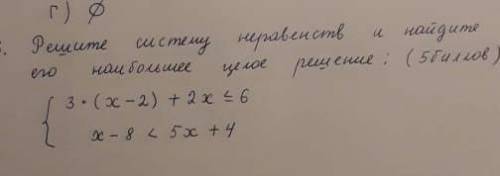 г) ∅
Решите систему неравенств и найдите
его наибольшее целое решение: (5баллов)
3·(x-2)+2x≤6
x-8<5x+4